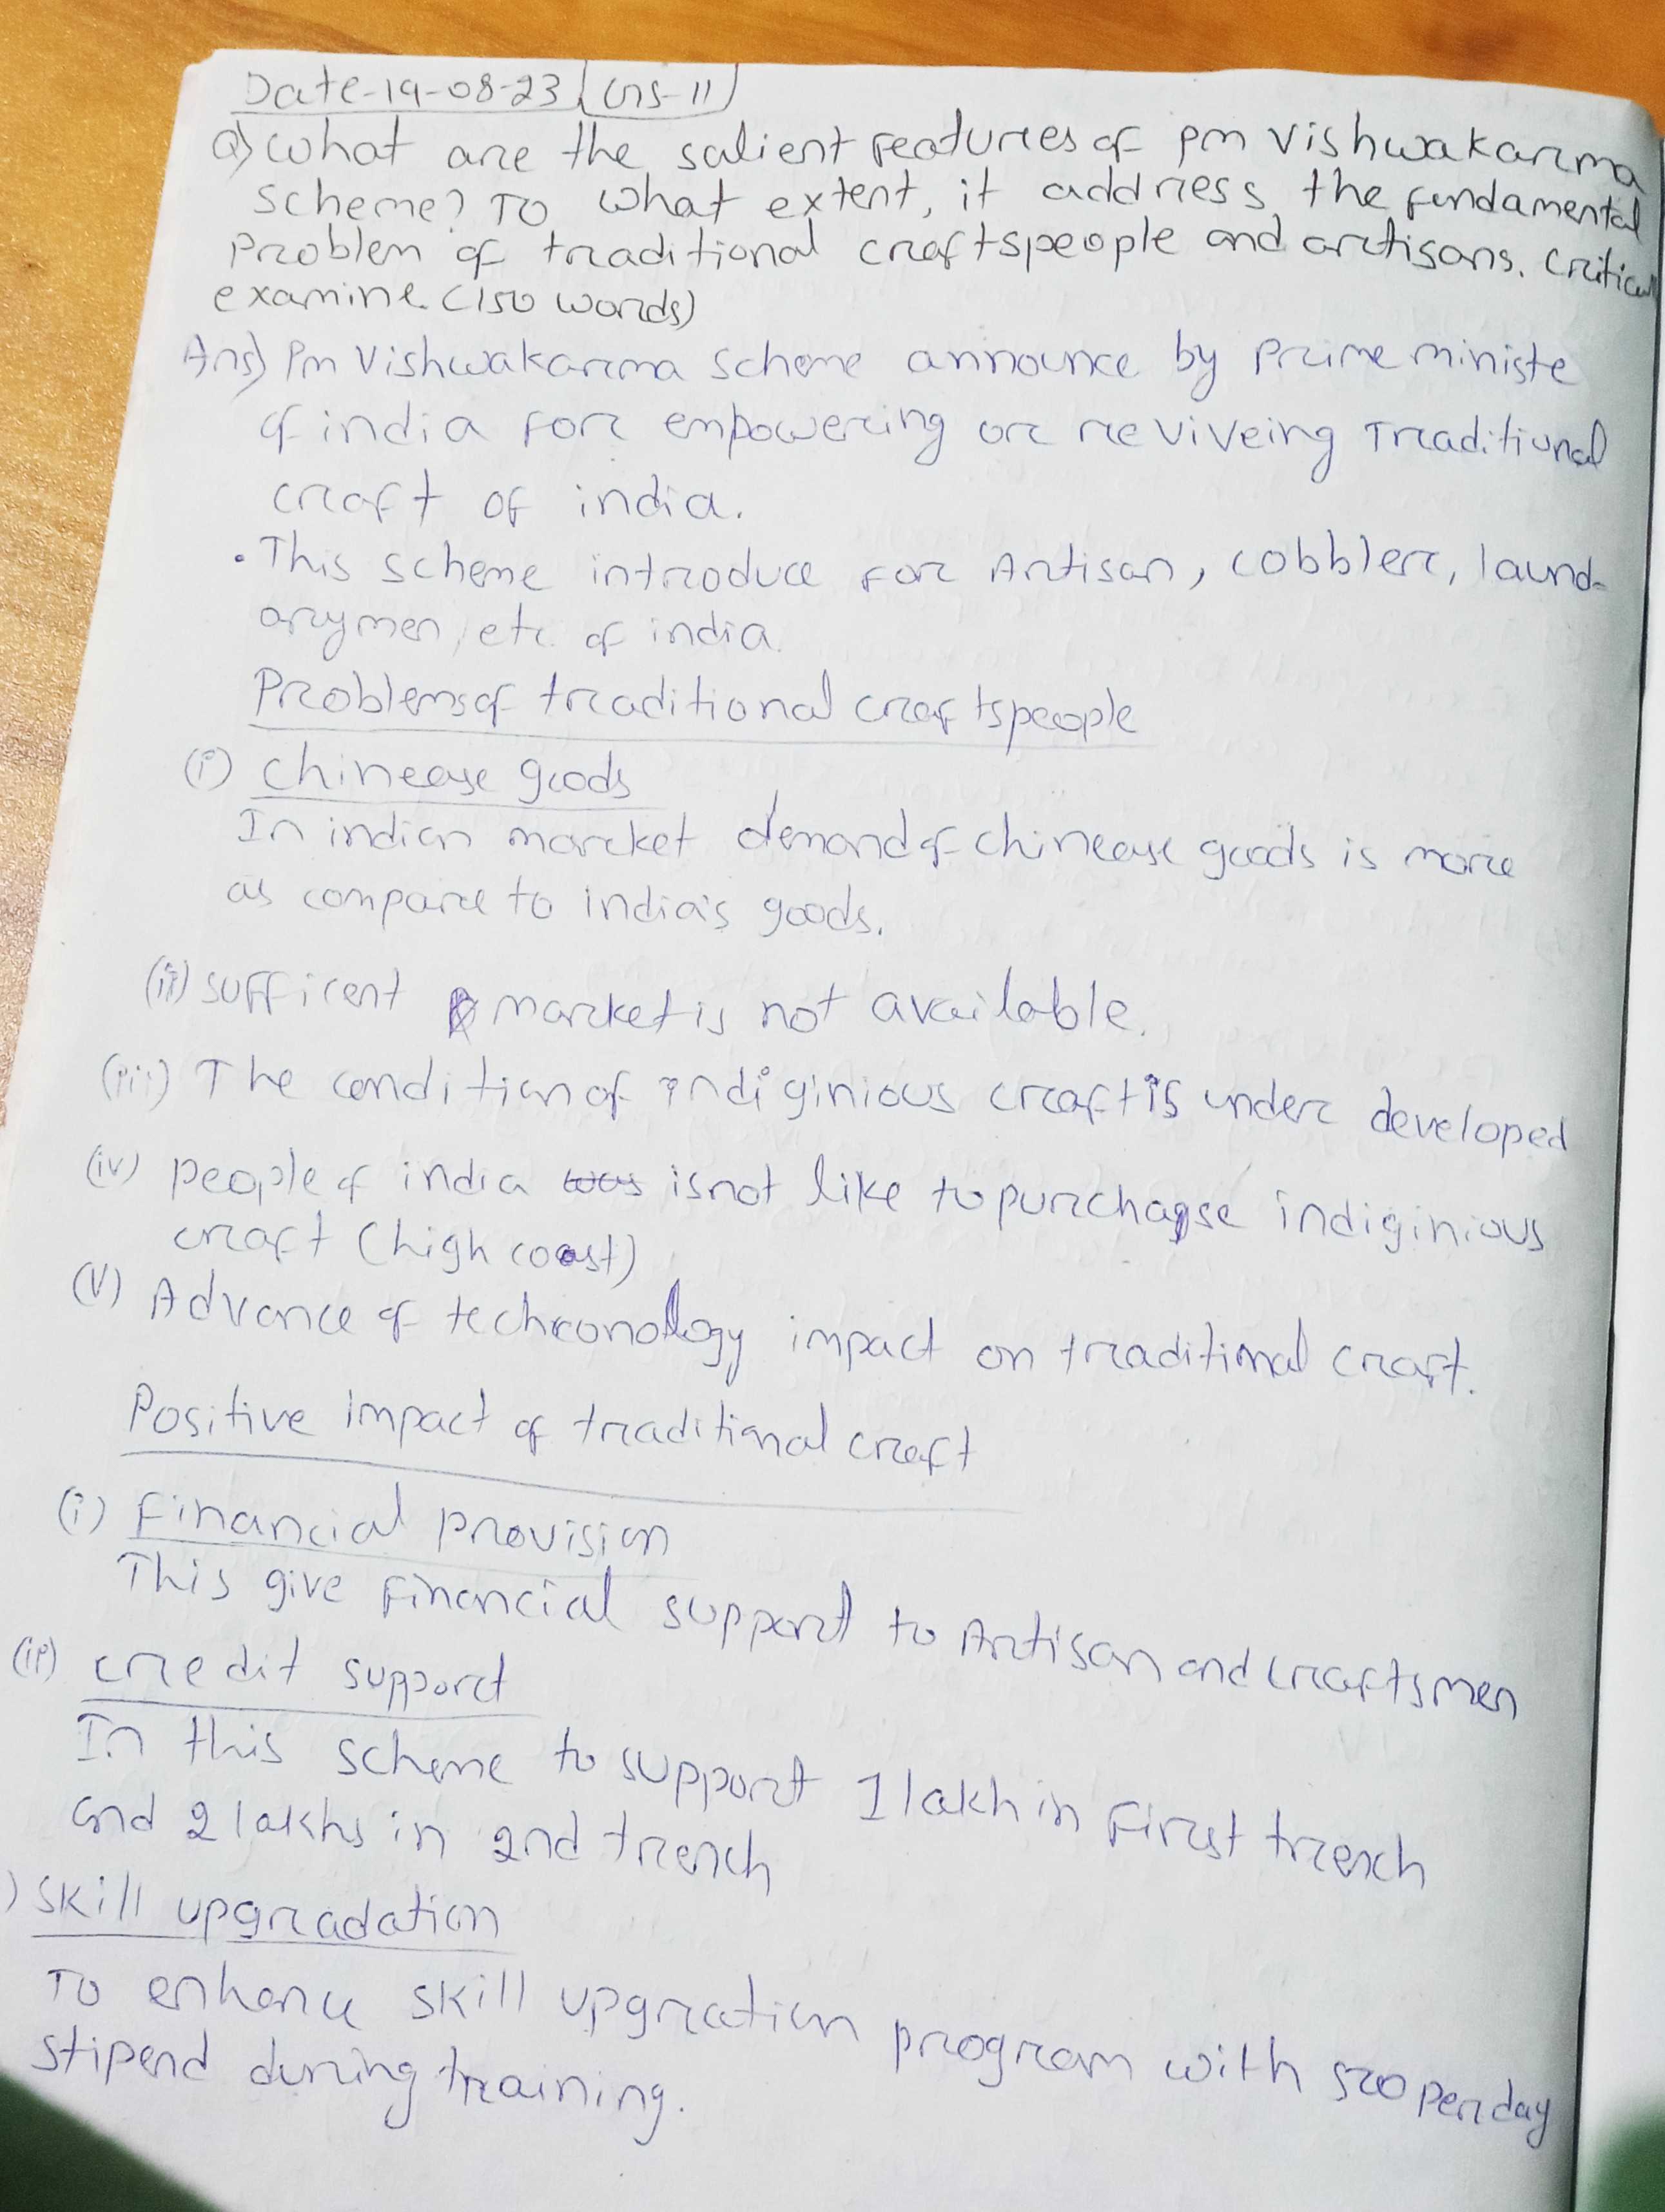 Date-19-08-23 GS-II
Q) What are the salient features of pm Vishwakarma
scheme? To what extent, it address the fundamental
Problem of traditional craftspeople and artisans. Critical
examine (150 words)
Ans) Pm Vishwakarma scheme announce by Prime ministe
of india for empowering or reviveing Traditional
craft of india.
• This scheme introduce for Artisan, cobbler, laund-
arymen, etc. of india.
Problems of traditional craftspeople
(i) chinease goods
In indian market demand of chinease goods is more
as compare to india's goods.
(ii) sufficent market is not available.
(iii) The condition of indiginious craft is under developed
(iv) people of india is not like to purchase indiginious
craft (high coast)
(v) Advance of technonology impact on traditional craft.
Positive impact of traditional craft
(i) Financial provision
This give financial support to Artisan and craftsmen
(ii) credit support
In this scheme to support 1 lakh in first trench
and 2 lakhs in 2nd trench
) skill upgradation
To enhance skill upgration program with 500 per day
stipend during training.